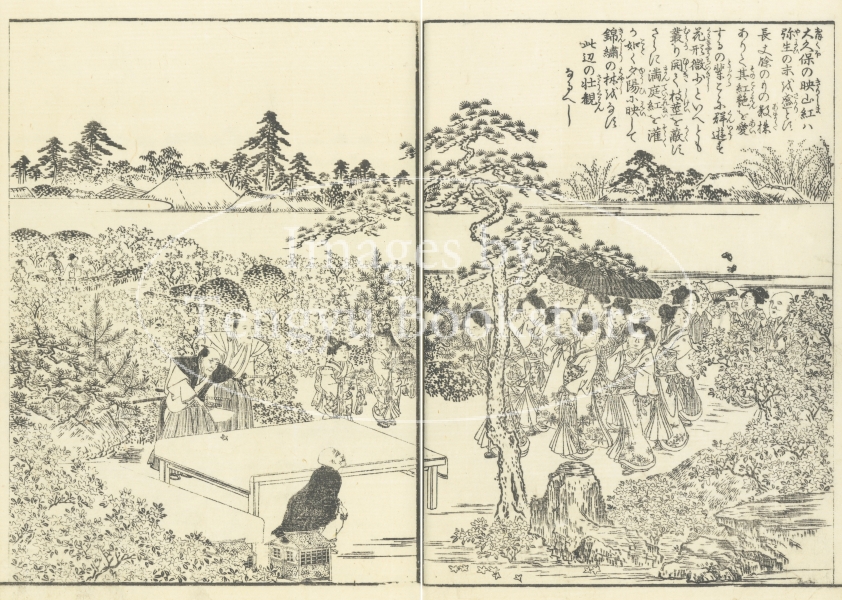 大久保の映山紅ハ
弥生の末を盛とす
長丈餘のもの数株
ありて其紅艶を愛
するの輩こゝに群遊す
花形微少といへとも
叢り開て枝茎を蔽す
さらに満庭紅を灌
か如く夕陽に映して
錦繍の林をなす
此辺の壮観
なるへし
Images by
Tengyu Bookstore